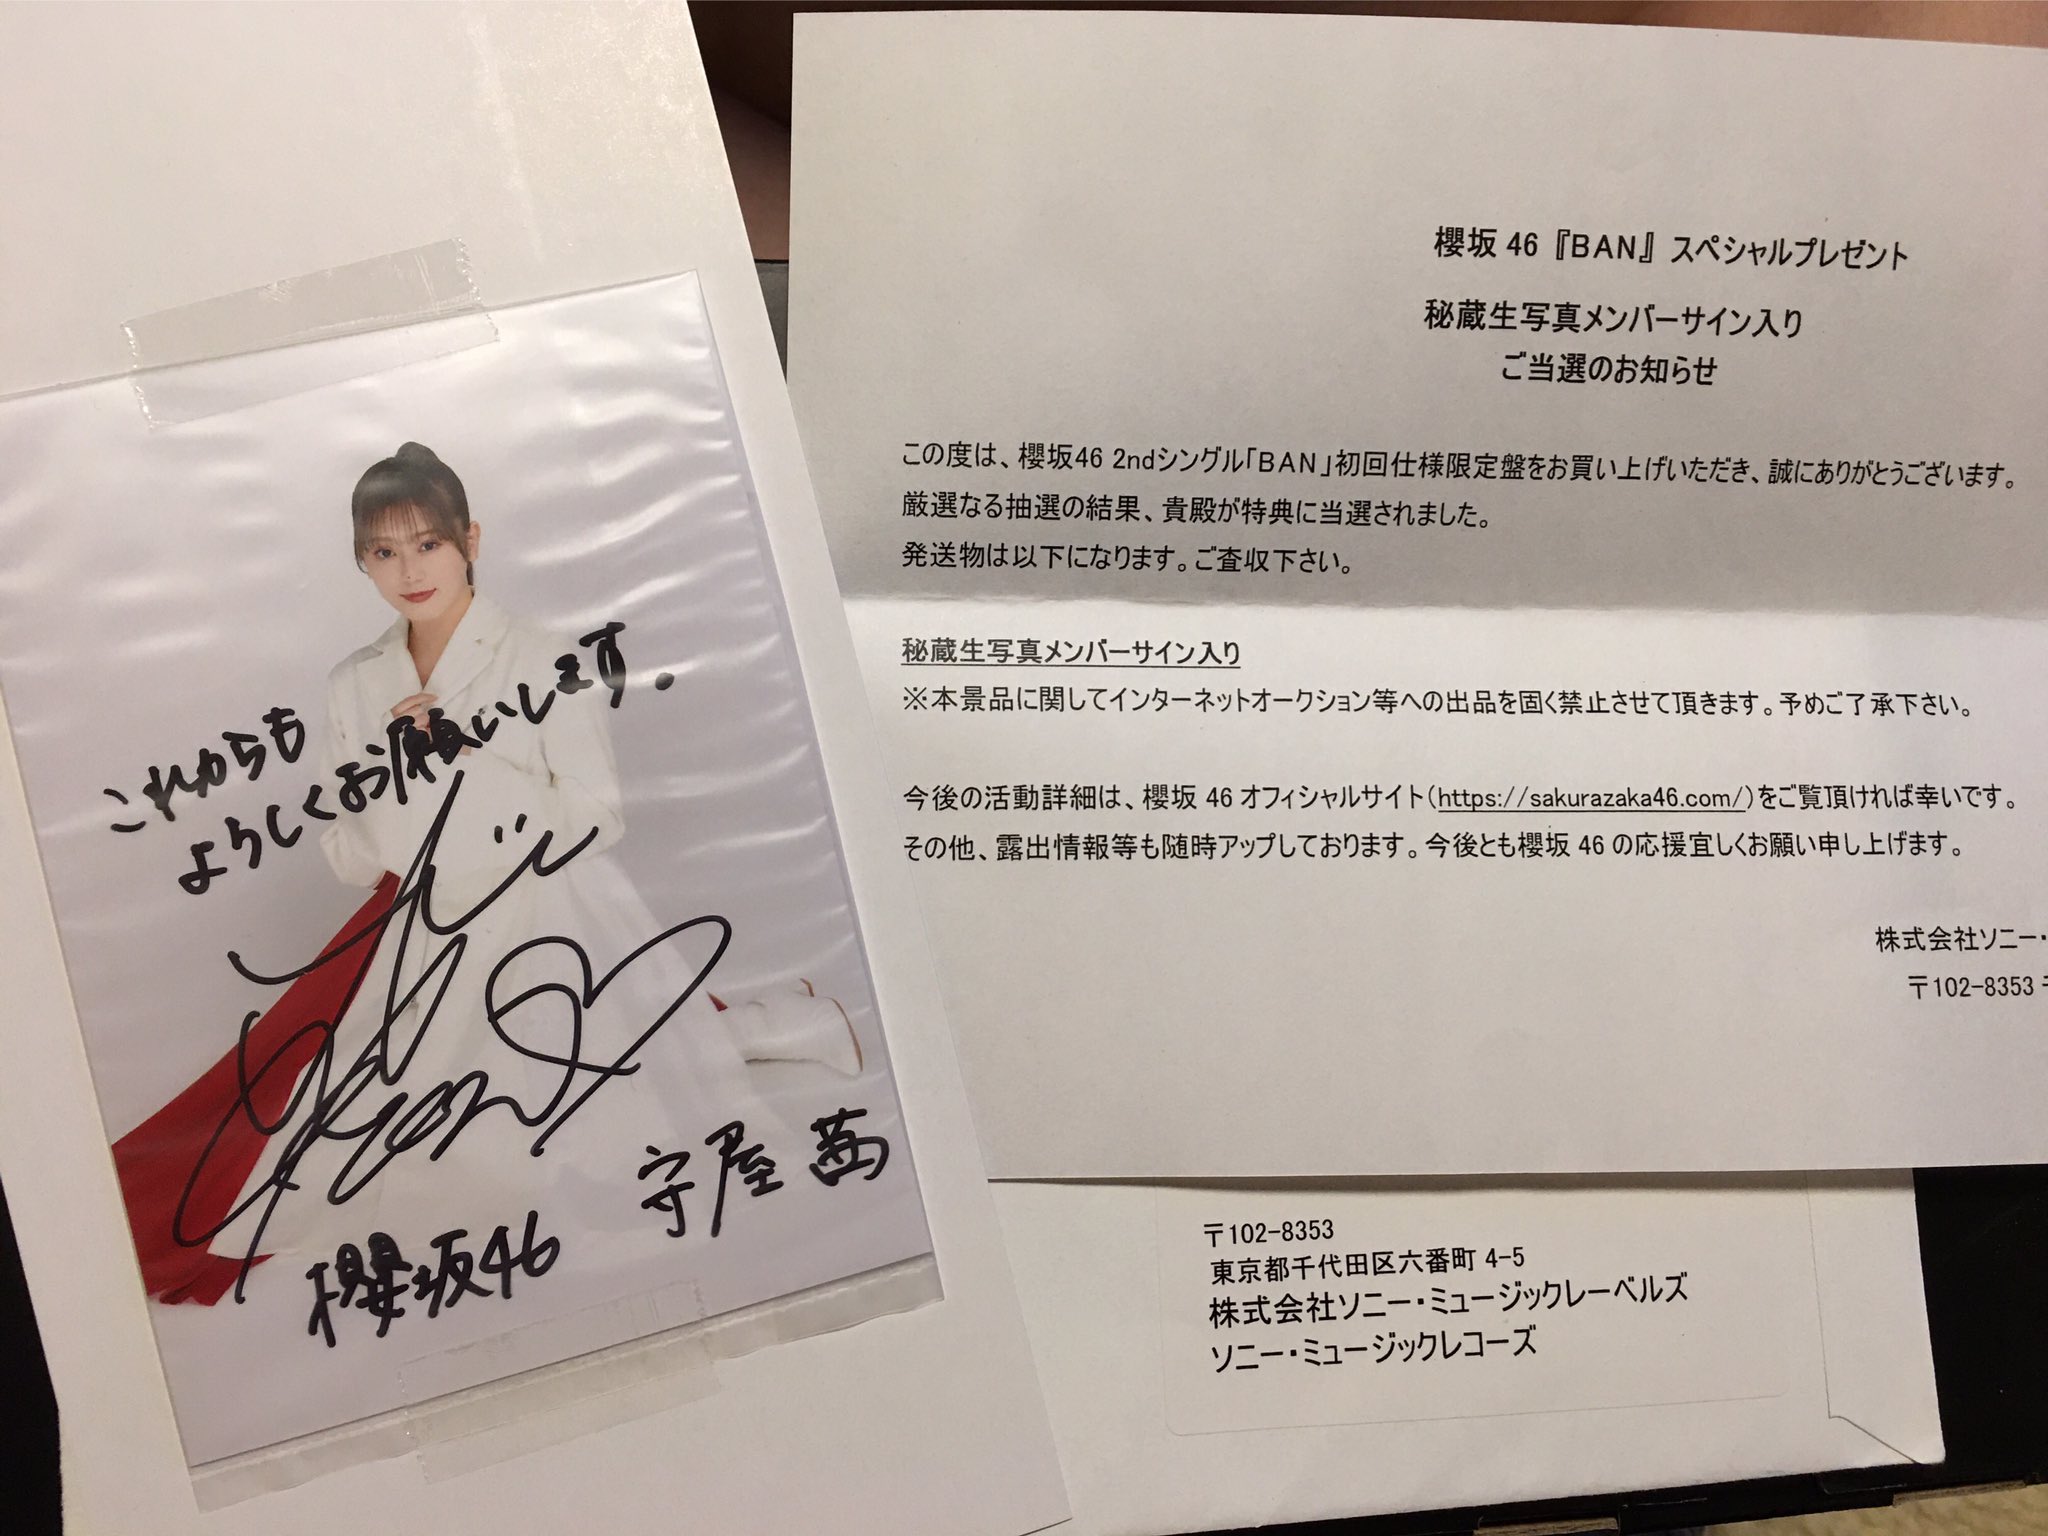 これからも
よろしくお願いします。
守屋茜
櫻坂46
櫻坂46『BAN』スペシャルプレゼント
秘蔵生写真メンバーサイン入り
ご当選のお知らせ
この度は、櫻坂46 2ndシングル「BAN」初回仕様限定盤をお買い上げいただき、誠にありがとうございます。
厳選なる抽選の結果、貴殿が特典に当選されました。
発送物は以下になります。ご査収下さい。
秘蔵生写真メンバーサイン入り
※本景品に関してインターネットオークション等への出品を固く禁止させて頂きます。予めご了承下さい。
今後の活動詳細は、櫻坂46オフィシャルサイト(https://sakurazaka46.com/)をご覧頂ければ幸いです。
その他、露出情報等も随時アップしております。今後とも櫻坂46の応援宜しくお願い申し上げます。
株式会社ソニー・
〒102-8353
〒102-8353
東京都千代田区六番町4-5
株式会社ソニー・ミュージックレーベルズ
ソニー・ミュージックレコーズ